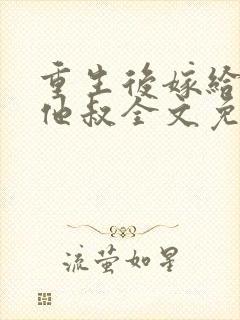 重生後嫁給
他叔全文免
流螢如星